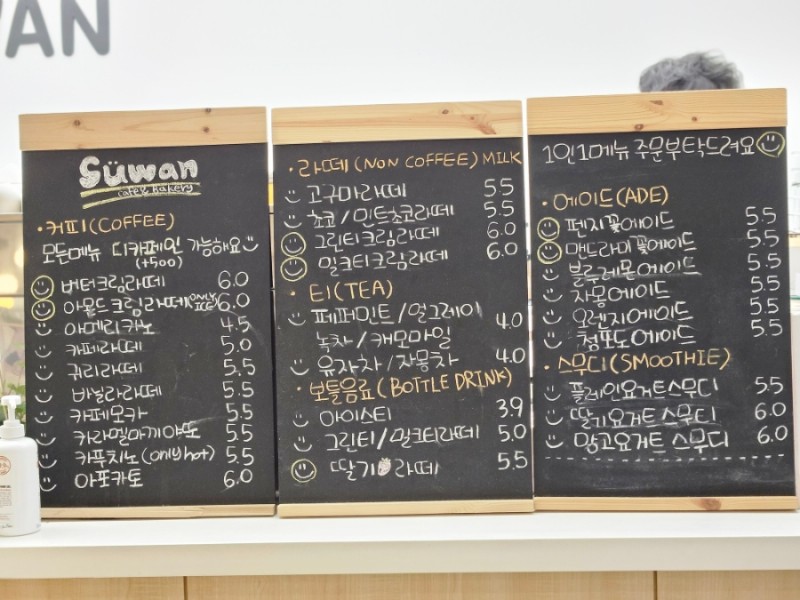 WAN
Süwan
cafe & Bakery
· 커피(COFFEE)
모든메뉴 디카페인 가능해요
(+500)
버터크림라떼 6.0
아몰드크림라떼 ONLY ICE 6.0
아메리카노 4.5
카페라떼 5.0
큐리라떼 5.5
바닐라라떼 5.5
카페모카 5.5
카라멜마끼야또 5.5
카푸치노(only hot) 5.5
아포카토 6.0
· 라떼(NON COFFEE) MILK
고구마라떼 5.5
초코/민트초코라떼 5.5
그린티크림라떼 6.0
밀크티크림라떼 6.0
· 티(TEA)
페퍼민트/얼그레이
녹차/캐모마일 4.0
유자차/자몽차 4.0
· 보틀음료(BOTTLE DRINK)
아이스티 3.9
그린티/밀크티라떼 5.0
딸기라떼 5.5
1인1메뉴 주문부탁드려요
· 에이드(ADE)
펜지꽃에이드 5.5
맨드라미꽃에이드 5.5
블루레몬에이드 5.5
자몽에이드 5.5
오렌지에이드 5.5
청포도에이드 5.5
· 스무디(SMOOTHIE)
플레인요거트스무디 5.5
딸기요거트스무디 6.0
망고요거트 스무디 6.0